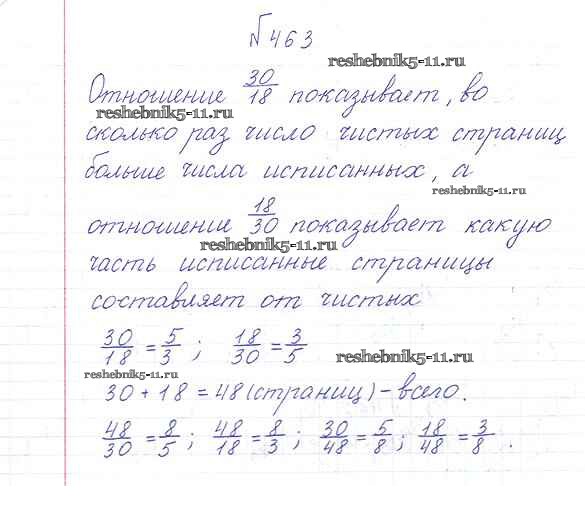 №463
reshebnik5-11.ru
Отношение 30/18 показывает, во
reshebnik5-11.ru
сколько раз число чистых страниц
больше числа исписанных, а
reshebnik5-11.ru
отношение 18/30 показывает какую
reshebnik5-11.ru
часть исписанные страницы
составляет от чистых
30/18 = 5/3 ; 18/30 = 3/5
reshebnik5-11.ru
reshebnik5-11.ru
30 + 18 = 48 (страниц) – всего.
48/30 = 8/5 ; 48/18 = 8/3 ; 30/48 = 5/8 ; 18/48 = 3/8 .